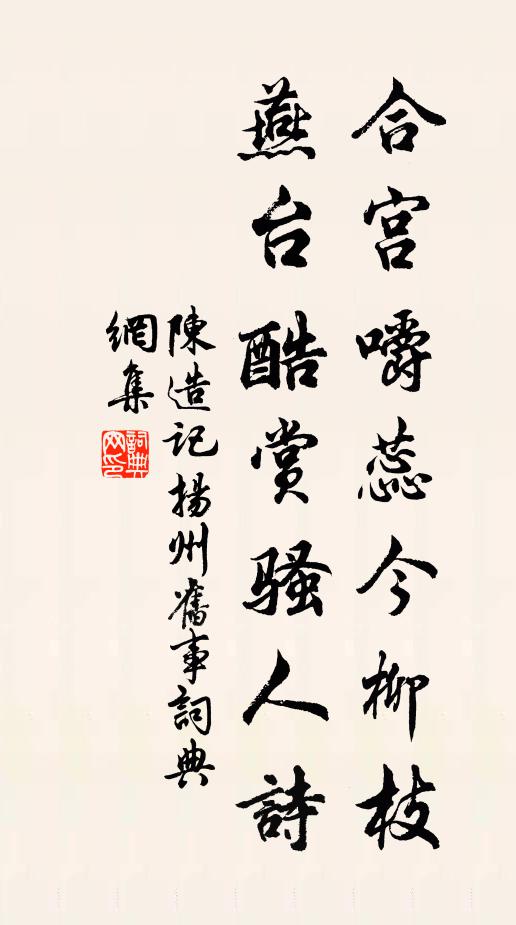 合宫嚼蕊今柳枝
燕台酷赏骚人詩
陳造记揚州舊事詞典
網集
詞典網印